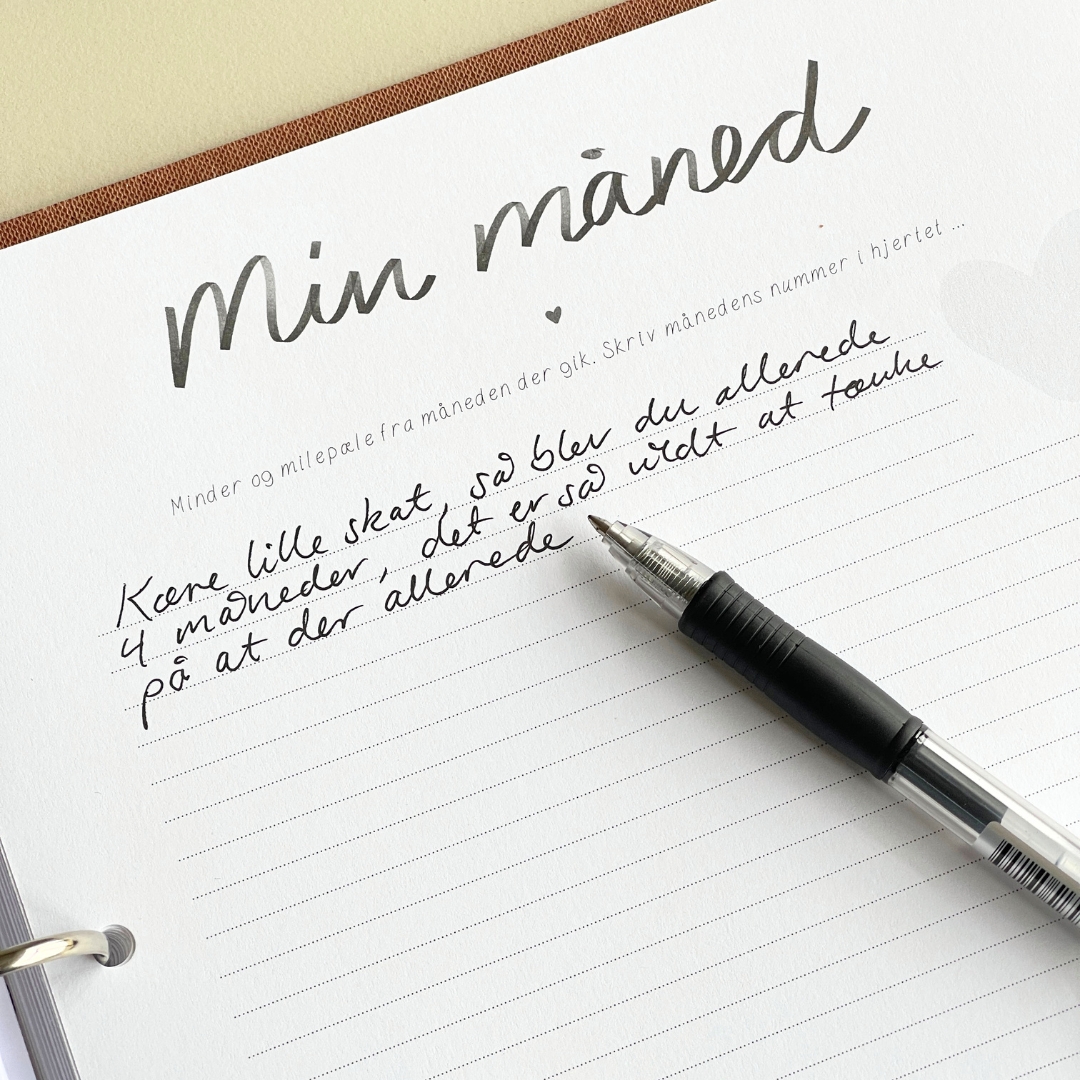 Min måned
Minder og milepæle fra måneden der gik. Skriv månedens nummer i hjertet ...
Kære lille skat, så blev du allerede
4 måneder, det er så vildt at tænke
på at der allerede